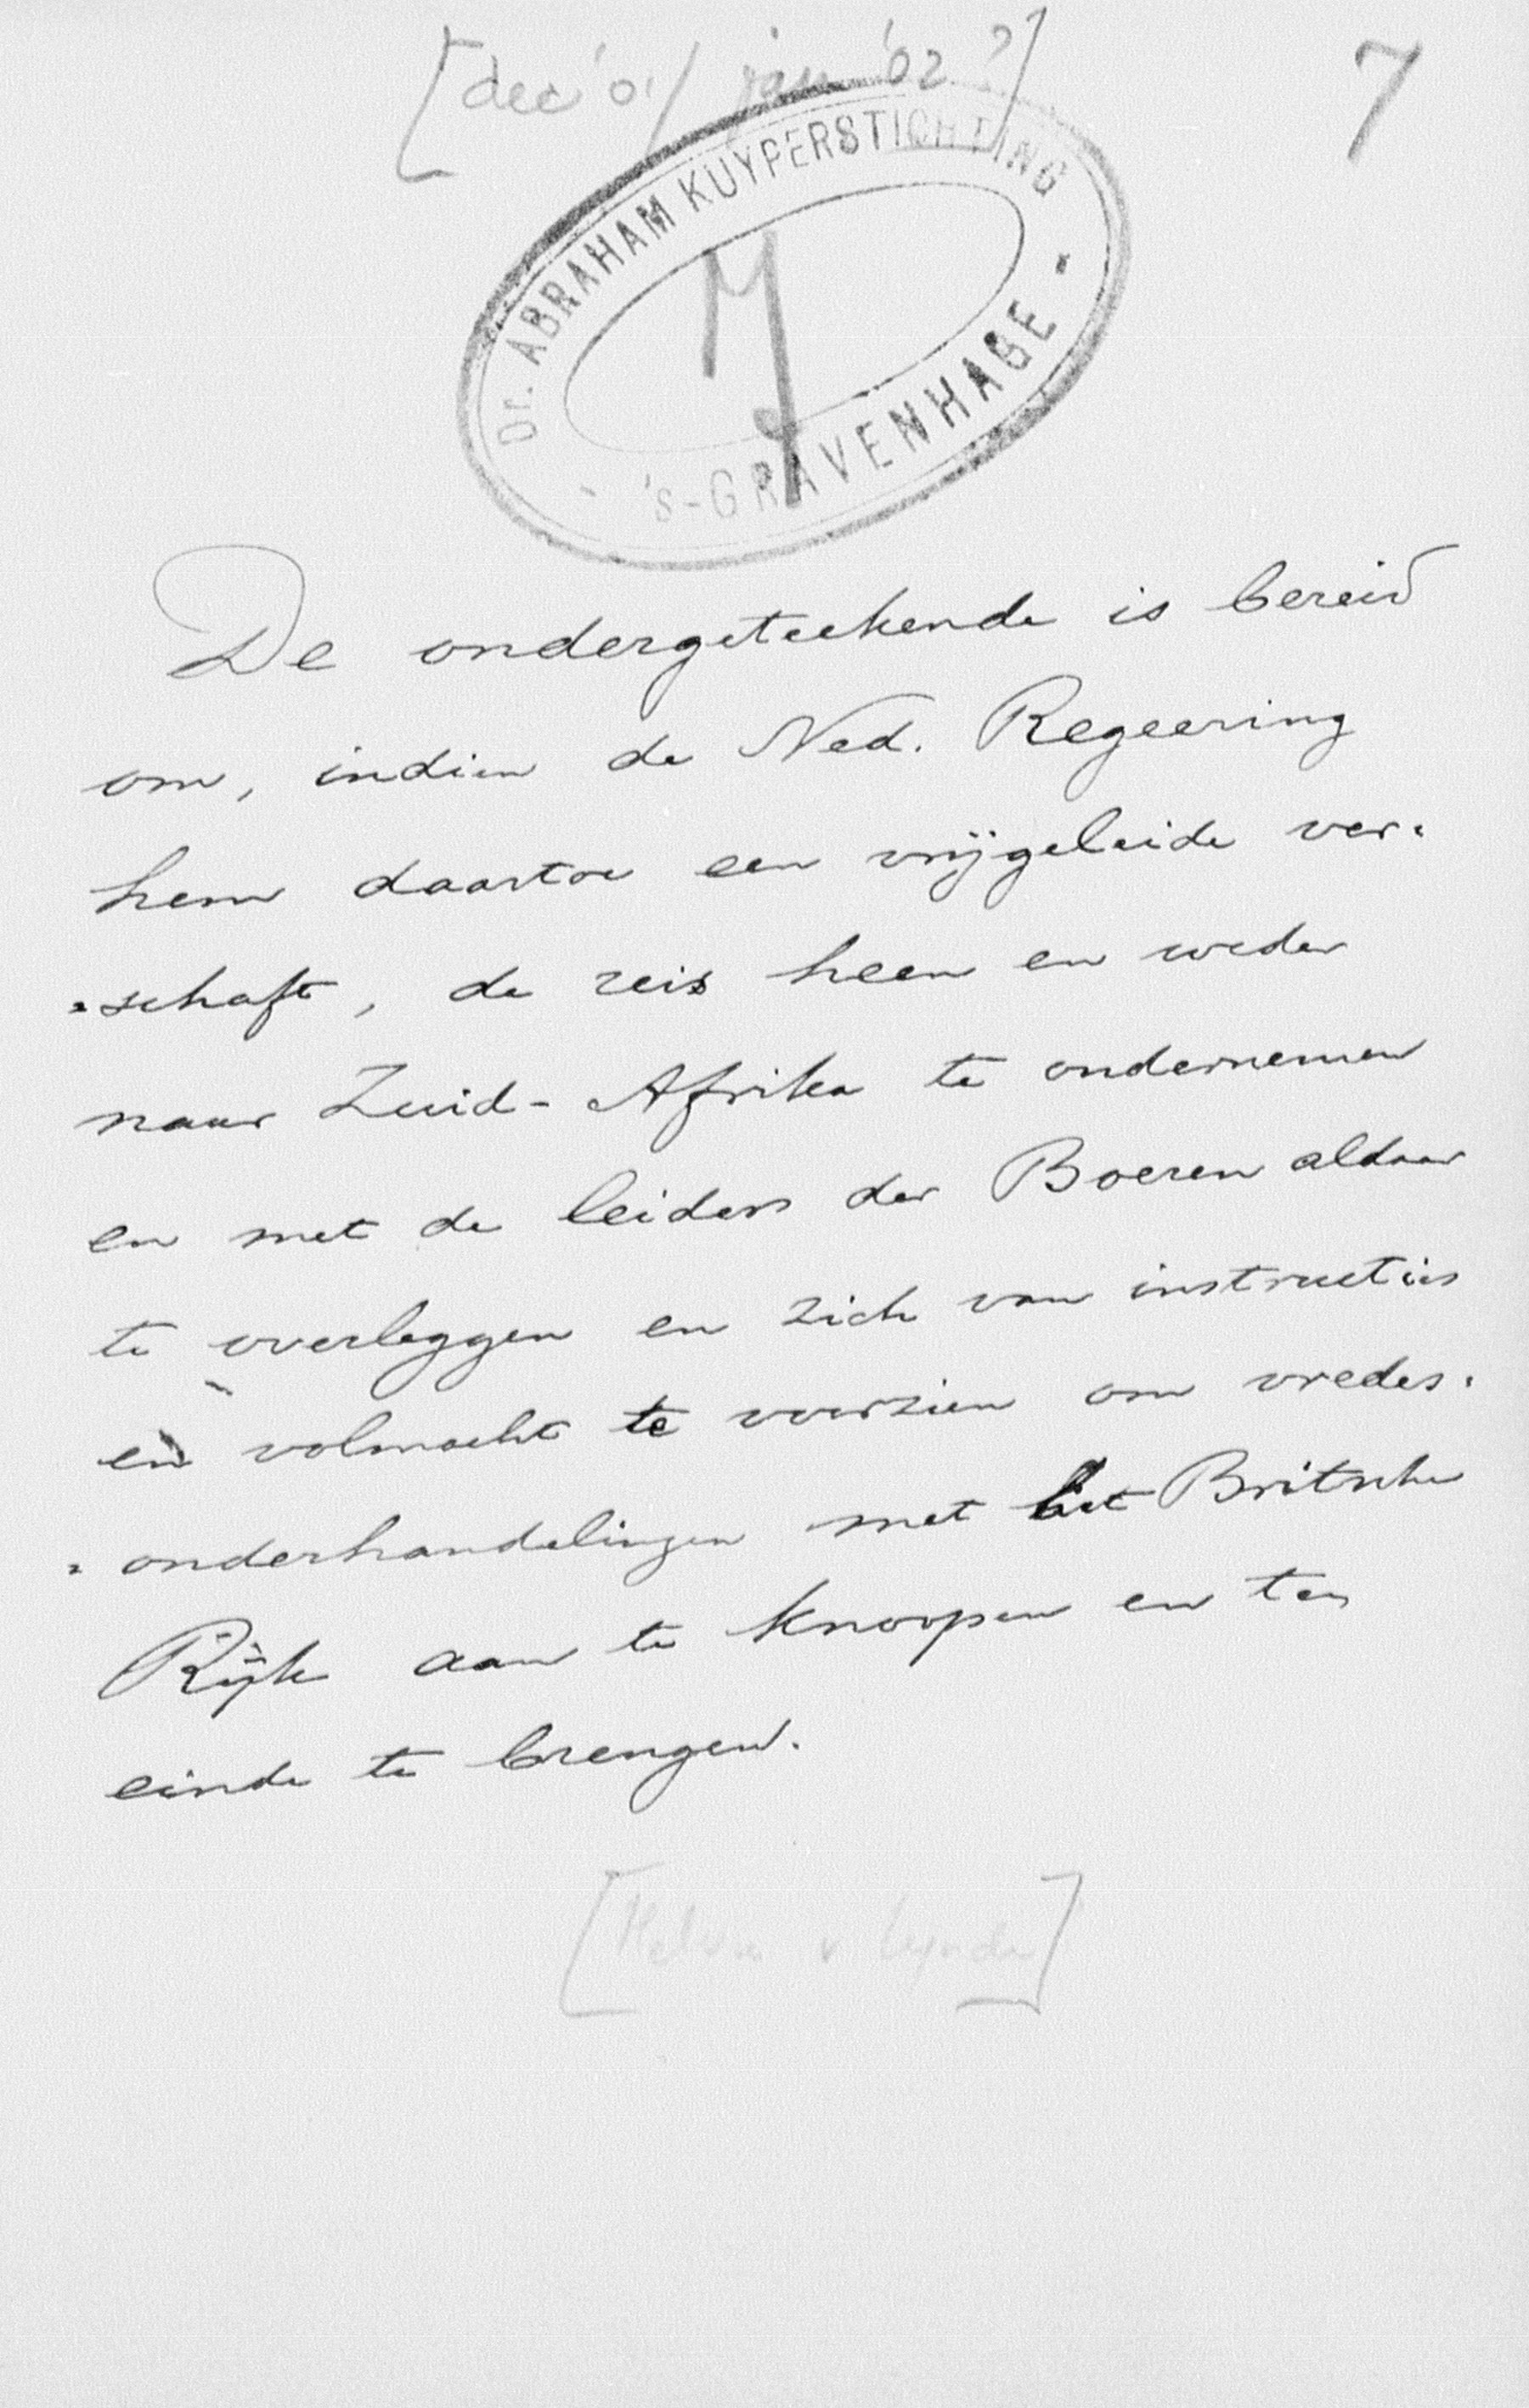 [dec '01/ jan '02 ?]
7
Dr. ABRAHAM KUYPERSTICHTING
's-GRAVENHAGE
De ondergeteekende is bereid
om, indien de Ned. Regeering
hem daartoe een vrijgeleide ver=
=schaft, de reis heen en weder
naar Zuid-Afrika te ondernemen
en met de leiders der Boeren aldaar
te overleggen en zich van instructies
en volmacht te voorzien om vredes=
=onderhandelingen met het Britsche
Rijk aan te knoopen en ten
einde te brengen.